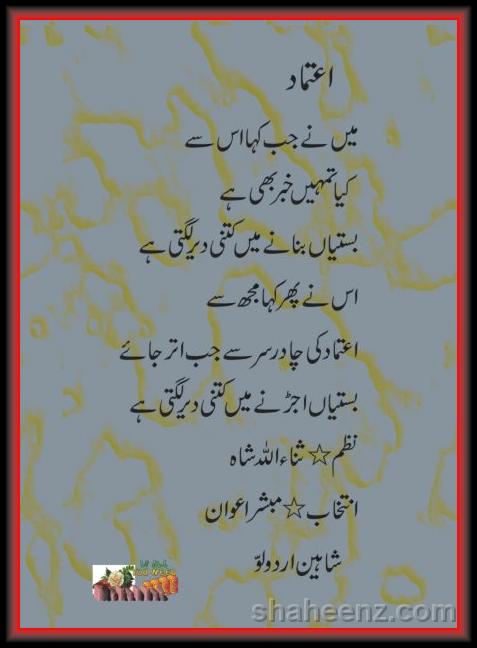 اعتماد
میں نے جب کہا اس سے
کیا تمہیں خبر بھی ہے
بستیاں بنانے میں کتنی دیر لگتی ہے
اس نے پھر کہا مجھ سے
اعتماد کی چادر سر سے جب اتر جائے
بستیاں اجڑنے میں کتنی دیر لگتی ہے
نظم☆ ثناءاللہ شاہ
انتخاب☆مبشر اعوان
شاہین اردو لوّ
shaheenz.com